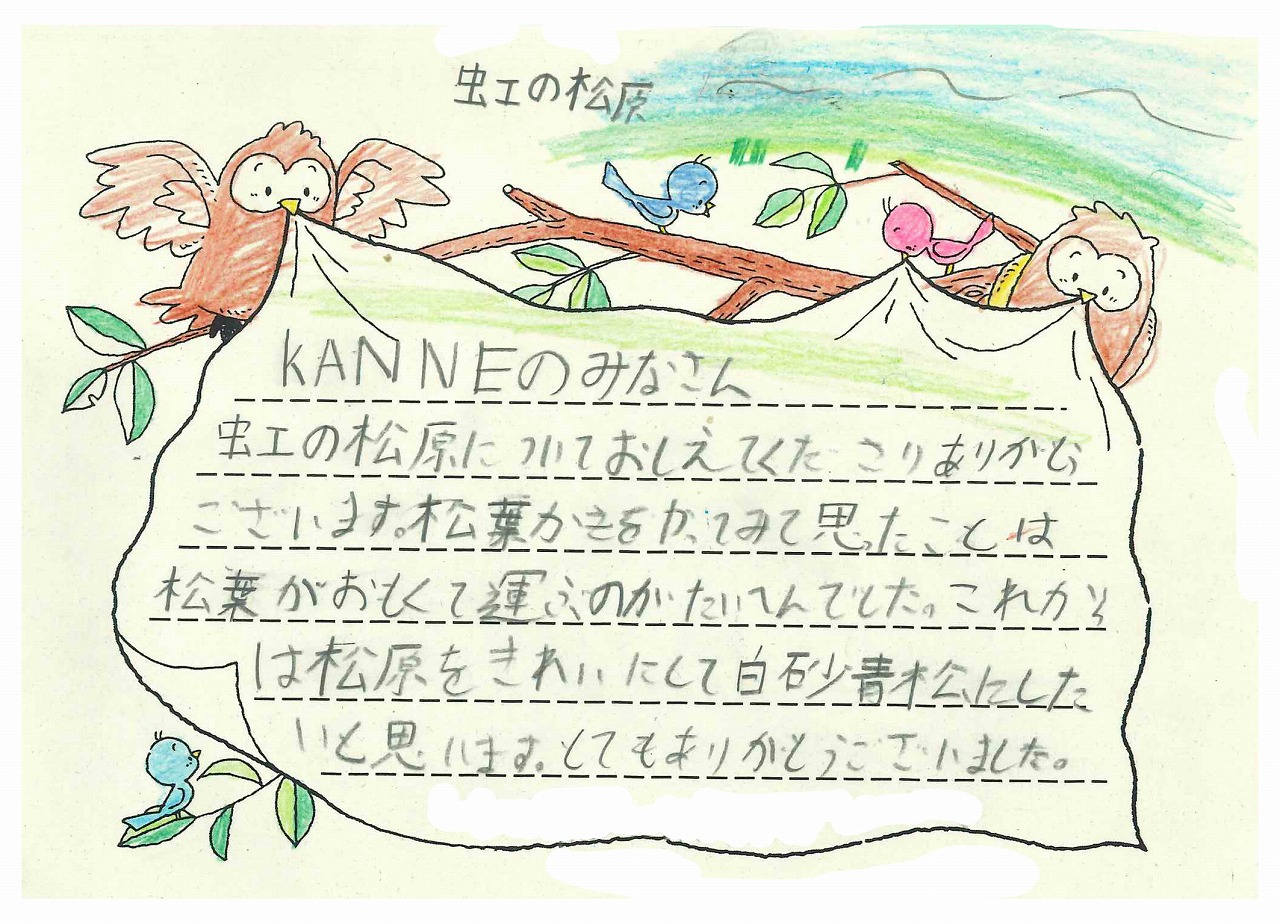 虹の松原
KANNEのみなさん
虹の松原についておしえてくださりありがとう
ございます。松葉かきをやってみて思ったことは
松葉がおもくて運ぶのがたいへんでした。これから
は松原をきれいにして白砂青松にした
いと思います。とてもありがとうございました。